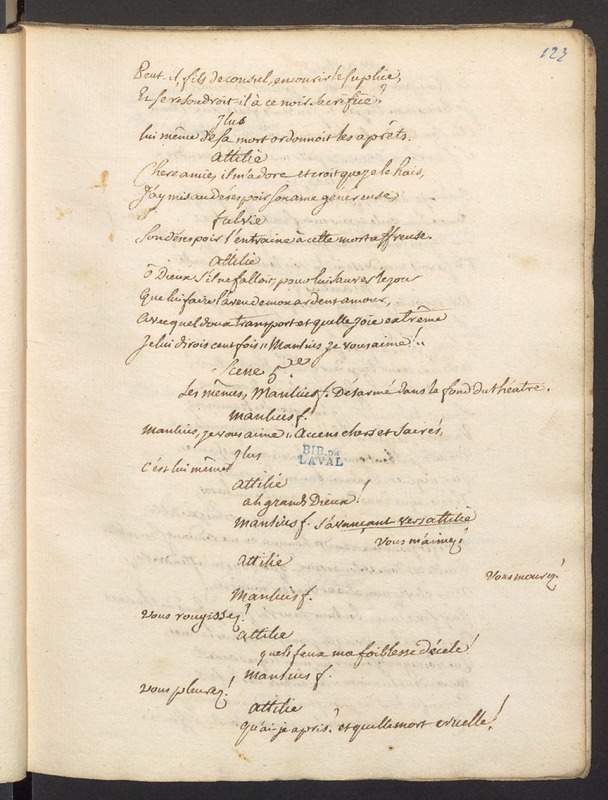 123
Peut-il, fils de consul, encourir le suplice,
Et se resoudroit-il à ce noir sacrifice?
Ilus
lui même de sa mort ordonnoit les aprêts.
attilie
Chere amie, il m'adore et croit que je le hais,
J'ay mis au désespoir son ame généreuse,
fulvie
Son désespoir l'entraine à cette mort affreuse.
attilie
ô Dieux s'il ne falloit, pour lui sauver le jour
Que lui faire l'aveu de mon ardent amour,
avec quel doux transport et quelle joie extrême
Je lui dirois cent fois "Manlius je vous aime!"
Scene 5.e
Les mêmes, Manlius f. Désarmé dans le fond du théatre.
manlius f.
Manlius, je vous aime" Accens chers et sacrés,
Ilus
c'est lui même
BIB. DE
LAVAL
attilie
ah grands Dieux!
manlius f. s'avançant vers attilie
vous m'aimez!
attilie
vous mourez!
Manlius f.
vous rougissez!
attilie
quels feux ma foiblesse décele!
manlius f.
vous pleurez!
attilie
qu'ai-je apris? et quelle mort cruelle!